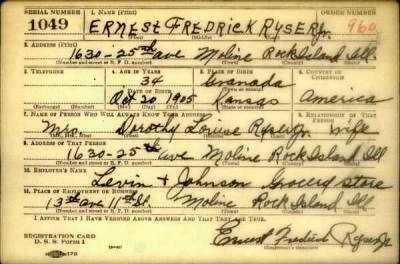 SERIAL NUMBER 1. NAME (Print) ORDER NUMBER
1049 ERNEST FREDRICK RYSER Jr. 960
(First) (Middle) (Last)
2. ADDRESS (Print)
1630-25th ave Moline Rock Island Ill.
(Number and street or R. F. D. number) (Town) (County) (State)
3. TELEPHONE 4. AGE IN YEARS 5. PLACE OF BIRTH 6. COUNTRY OF CITIZENSHIP
34 Granada
DATE OF BIRTH
Oct 20 1905 Kansas America
(Exchange) (Number) (Mo.) (Day) (Yr.) (State or country)
7. NAME OF PERSON WHO WILL ALWAYS KNOW YOUR ADDRESS 8. RELATIONSHIP OF THAT PERSON
Mrs. Dorothy Louise Ryser Jr. wife
(Mr., Mrs., Miss) (First) (Middle) (Last)
9. ADDRESS OF THAT PERSON
1630-25th Ave Moline Rock Island Ill
(Number and street or R. F. D. number) (Town) (County) (State)
10. EMPLOYER'S NAME
Levin + Johnson Grocery store
11. PLACE OF EMPLOYMENT OR BUSINESS
13th ave 11th St. Moline Rock Island Ill.
(Number and street or R. F. D. number) (Town) (County) (State)
I AFFIRM THAT I HAVE VERIFIED ABOVE ANSWERS AND THAT THEY ARE TRUE.
REGISTRATION CARD
D. S. S. Form 1
Ernest Fredrick Ryser Jr.
(Registrant's signature)